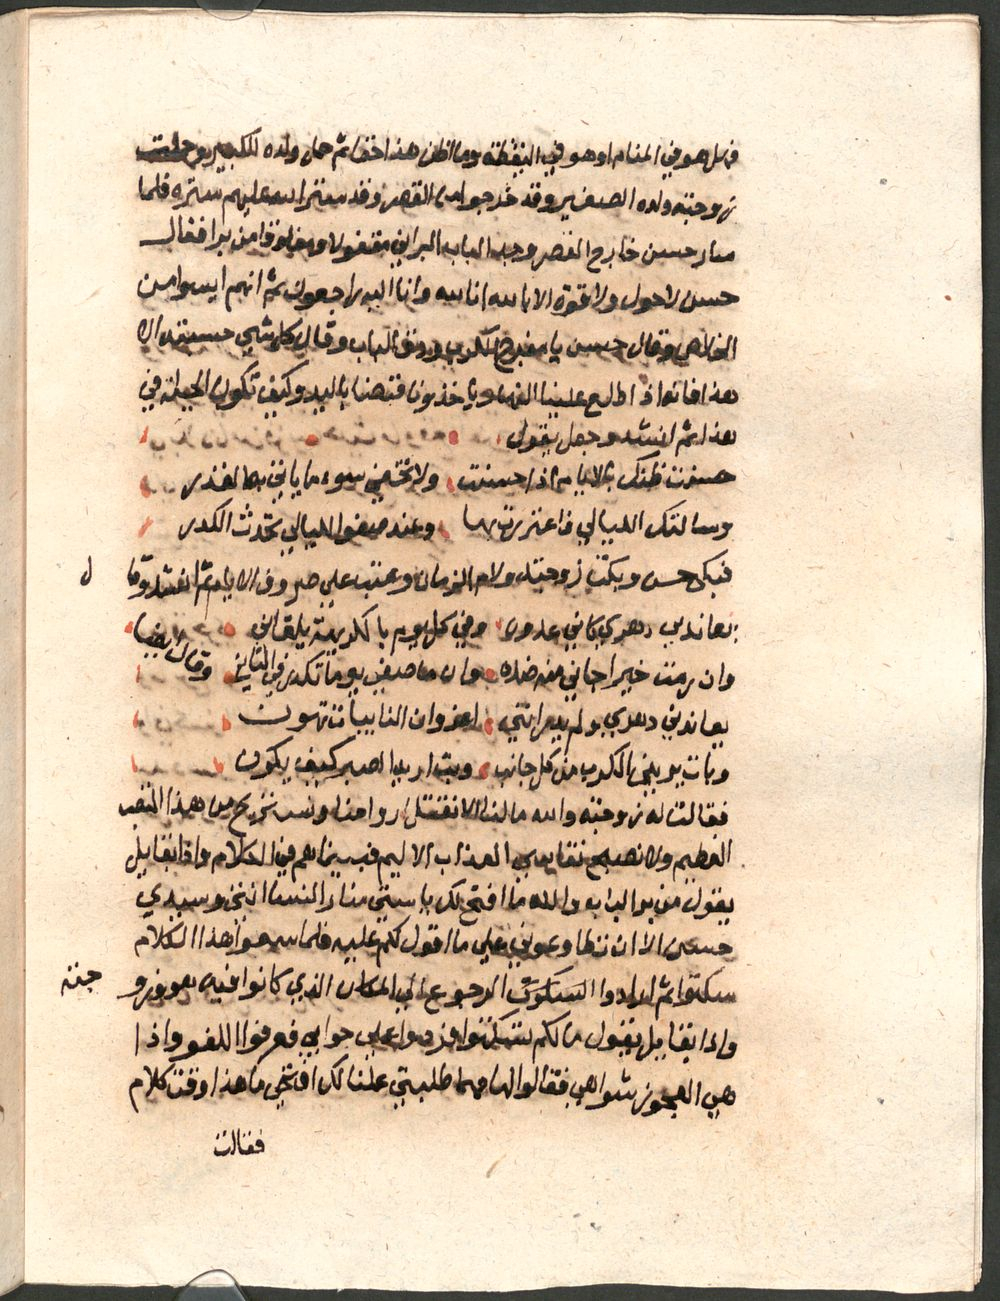 فهل هو في المنام او هو في اليقظة وما اظن هذا اخفا ثم حمل ولده الكبير وحملت
زوجته ولده الصغير وقد خرجوا من القصر وقد ستر الله عليهم ستره فلما
سار حسن خارج القصر وجد الباب البراني مقفولا ومغلوقا من برا فقال
حسن لا حول ولا قوة الا بالله انا لله وانا اليه راجعون ثم انهم ايسوا من
الخلاص وقال حسن يا مفرج الكرب ودق الباب وقال كل شي حسبته الا
هذا فانه اذا طلع علينا النهار ياخذونا قبضا باليد وكيف تكون الحيلة في
هذا ثم انشد وجعل يقول
حسنت ظنك بالايام اذا حسنت ولا تختشي سوء ما ياتي به القدر
وسالمتك الليالي فاغتررت بها وعند صفو الليالي يحدث الكدر
فبكي حسن وبكت زوجته ولام الزمان وعتب علي صروف الايام ثم انشد وقا ل
يعاندني دهري كاني عدوه وفي كل يوم بالكريهة يلقاني
وان رمت خيرا جاني منه ضده وان ما صفي يوما تكدر في الثاني وقال ايضا
يعاندني دهري ولم يدر انني اعز وان النايبات تهون
وبات يريني الكرب من كل جانب وبت اريه الصبر كيف يكون
فقالت له زوجته والله مالنا الا نقتل ارواحنا ونستريح من هذا التعب
العظيم ولا نصبح نقاسي العذاب الاليم فبينما هم في الكلام واذا بقايل
يقول من برا الباب والله ما افتح لك يا ستي منار النسا انتي وسيدي
حسن الا ان تطاوعوني علي ما اقول لكم عليه فلما سمعوا هذا الكلام
سكتوا ثم ارادوا السكوت الرجوع الي المكان الذي كانوا فيه
واذا بقايل يقول مالكم سكتوا ردوا علي جوابي فعرفوا اللغو واذا
هي العجوز شواهي فقالوا لها مهما طلبتي عملنا لك افتحي ما هذا وقت كلام
فقالت